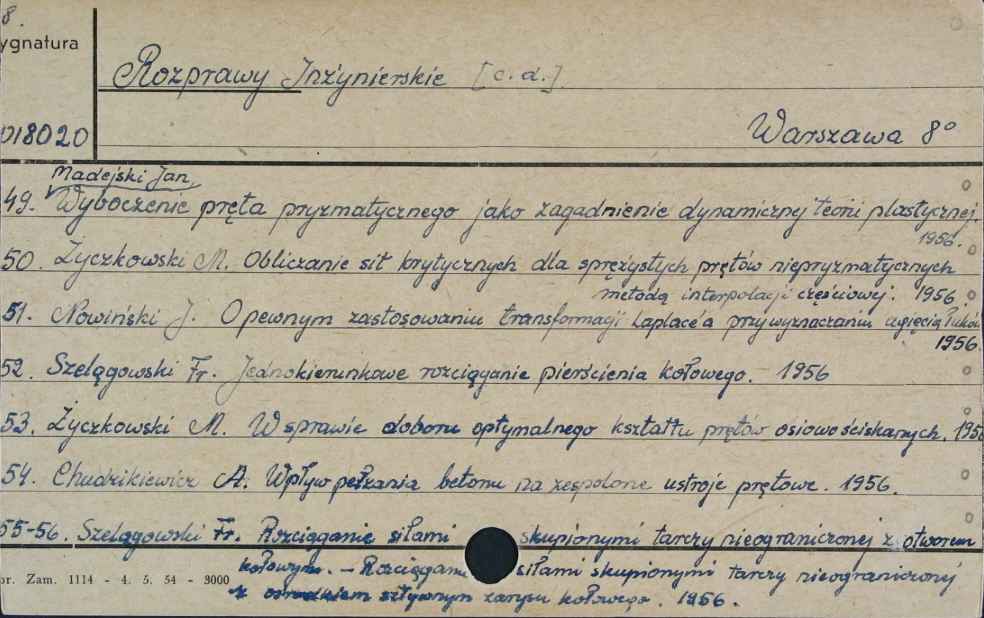 8.
ygnatura
Rozprawy Inżynierskie [c. d.]
018020
Warszawa 8°
Madejski Jan,
49. Wyboczenie pręta pryzmatycznego jako zagadnienie dynamicznej teorii plastycznej.
1956.
50. Życzkowski M. Obliczanie sił krytycznych dla sprężystych prętów niepryzmatycznych
metodą interpolacji częściowej. 1956.
51. Nowiński J. O pewnym zastosowaniu transformacji Laplace'a przy wyznaczaniu ugięcia łuków
1956.
52. Szelągowski Fr. Jednokierunkowe rozciąganie pierścienia kołowego. 1956
53. Życzkowski M. W sprawie doboru optymalnego kształtu prętów osiowościskanych. 1956
54. Chudzikiewicz A. Wpływ pełzania betonu na zespolone ustroje prętowe. 1956.
55-56. Szelągowski Fr. Rozciąganie siłami skupionymi tarczy nieograniczonej z otworem
kołowym. - Rozciąganie siłami skupionymi tarczy nieograniczonej
z ośrodkiem sztywnym zarysu kołowego. 1956.
or. Zam. 1114 - 4. 5. 54 - 3000